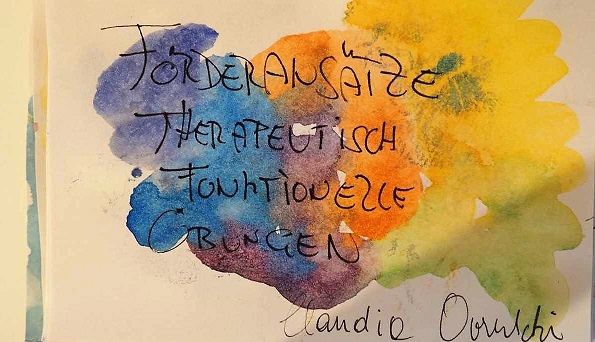 FÖRDERANSÄTZE
THERAPEUTISCH
FUNKTIONELLE
ÜBUNGEN
Claudia